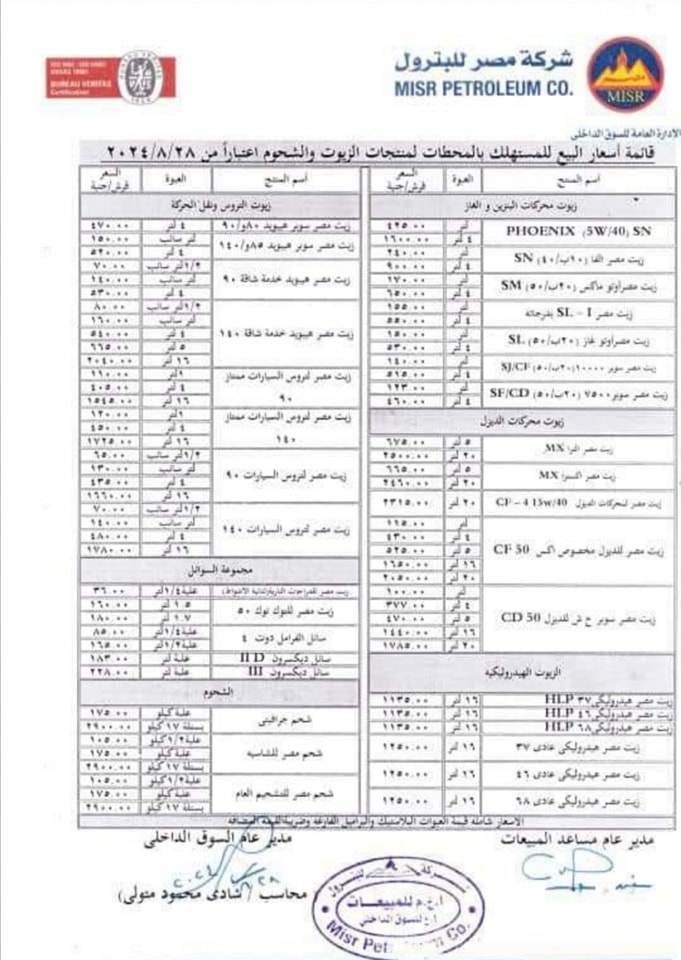 ISO 9001 - ISO 14001
OHSAS 18001
BUREAU VERITAS
Certification
شركة مصر للبترول
MISR PETROLEUM CO.
MISR
الادارة العامة للسوق الداخلى
قائمة أسعار البيع للمستهلك بالمحطات لمنتجات الزيوت والشحوم اعتباراً من ٢٠٢٤/٨/٢٨
اسم المنتج العبوة السعر قرش/جنية
زيوت محركات البنزين و الغاز
PHOENIX (5W/40) SN لتر ٤٢٥.٠٠
٤ لتر ١٦٠٠.٠٠
زيت مصر الفا (٢٠ب/٤٠) SN لتر ٢٤٠.٠٠
٤ لتر ٩٠٠.٠٠
زيت مصراوتو ماكس (٢٠ب/٥٠) SM لتر ١٧٠.٠٠
٤ لتر ٦٥٠.٠٠
زيت مصر SL – I بفرجاتة لتر ١٥٥.٠٠
٤ لتر ٥٨٠.٠٠
زيت مصراوتو غاز (٢٠ب/٥٠) SL لتر ١٥٠.٠٠
٤ لتر ٥٣٠.٠٠
زيت مصر سوبر ١٠٠٠٠(٢٠ب/٥٠) SJ/CF لتر ١٤٠.٠٠
٤ لتر ٥١٥.٠٠
زيت مصر سوبر ٧٥٠٠ (٢٠ب/٥٠) SF/CD لتر ١٢٣.٠٠
٤ لتر ٤٦٠.٠٠
زيوت محركات الديزل
زيت مصر الترا MX ٥ لتر ٦٧٥.٠٠
٢٠ لتر ٢٥٠٠.٠٠
زيت مصر اكسترا MX ٥ لتر ٦٦٥.٠٠
٢٠ لتر ٢٤٦٠.٠٠
زيت مصر لمحركات الديزل CF – 4 15w/40 ٢٠ لتر ٢٣١٥.٠٠
زيت مصر للديزل مخصوص اكس CF 50 لتر ١١٥.٠٠
٤ لتر ٤٣٠.٠٠
٥ لتر ٥٢٥.٠٠
١٦ لتر ١٦٥٠.٠٠
٢٠ لتر ٢٠٥٠.٠٠
زيت مصر سوبر ح ش للديزل CD 50 لتر ١٠٠.٠٠
٤ لتر ٣٧٧.٠٠
٥ لتر ٤٧٠.٠٠
١٦ لتر ١٤٤٠.٠٠
٢٠ لتر ١٧٨٥.٠٠
الزيوت الهيدروليكيه
زيت مصر هيدروليكي HLP ٣٧ ١٦ لتر ١١٣٥.٠٠
زيت مصر هيدروليكي HLP ٤٦ ١٦ لتر ١١٣٥.٠٠
زيت مصر هيدروليكي HLP ٦٨ ١٦ لتر ١١٣٥.٠٠
زيت مصر هيدروليكي عادى ٣٧ ١٦ لتر ١٢٥٠.٠٠
زيت مصر هيدروليكي عادى ٤٦ ١٦ لتر ١٢٥٠.٠٠
زيت مصر هيدروليكي عادى ٦٨ ١٦ لتر ١٢٥٠.٠٠
اسم المنتج العبوة السعر قرش/جنية
زيوت التروس ونقل الحركة
زيت مصر سوبر هيبويد ٨٠و/٩٠ ٤ لتر ٤٧٠.٠٠
زيت مصر سوبر هيبويد ٨٥و/١٤٠ لتر سائب ١٥٠.٠٠
٤ لتر ٥٢٠.٠٠
زيت مصر هيبويد خدمة شاقة ٩٠ ١/٢لتر سائب ٧٠.٠٠
لتر سائب ١٤٠.٠٠
٤ لتر ٥٣٠.٠٠
زيت مصر هيبويد خدمة شاقة ١٤٠ ١/٢لتر سائب ٨٠.٠٠
لتر سائب ١٦٠.٠٠
٤ لتر ٥٤٠.٠٠
٥ لتر ٦٦٥.٠٠
١٦ لتر ٢٠٤٠.٠٠
زيت مصر لتروس السيارات ممتاز ٩٠ ١لتر ١١٠.٠٠
٤ لتر ٤٠٥.٠٠
١٦ لتر ١٥٤٥.٠٠
زيت مصر لتروس السيارات ممتاز ١٤٠ ١لتر ١٢٠.٠٠
٤ لتر ٤٥٠.٠٠
١٦ لتر ١٧٢٥.٠٠
زيت مصر لتروس السيارات ٩٠ ١/٢لتر سائب ٦٥.٠٠
لتر سائب ١٣٠.٠٠
٤ لتر ٤٣٥.٠٠
١٦ لتر ١٦٦٠.٠٠
زيت مصر لتروس السيارات ١٤٠ ١/٢لتر سائب ٧٠.٠٠
لتر سائب ١٤٠.٠٠
٤ لتر ٤٨٠.٠٠
١٦ لتر ١٧٨٠.٠٠
مجموعة السوائل
زيت مصر للدراجات النارية(ثنائية الاشواط) علبة١/٤لتر ٣٦.٠٠
زيت مصر للتوك توك ٥٠ ١.٥ لتر ١٦٠.٠٠
١.٧ لتر ١٨٠.٠٠
سائل الفرامل دوت ٤ علبة١/٤لتر ٨٥.٠٠
علبة١/٢لتر ١٦٥.٠٠
سائل ديكسرون II D علبة لتر ١٨٣.٠٠
سائل ديكسرون III علبة لتر ٢٢٨.٠٠
الشحوم
شحم جرافيتى علبة كيلو ١٧٥.٠٠
بستلة ١٧ كيلو ٢٩٠٠.٠٠
شحم مصر للشاسيه علبة١/٢كيلو ١٠٥.٠٠
علبة كيلو ١٧٥.٠٠
بستلة ١٧ كيلو ٢٩٠٠.٠٠
شحم مصر للتشحيم العام علبة١/٢كيلو ١٠٥.٠٠
علبة كيلو ١٧٥.٠٠
بستلة ١٧ كيلو ٢٩٠٠.٠٠
الاسعار شاملة قيمة العبوات البلاستيك والبراميل الفارغة وضريبة القيمة المضافة
مدير عام مساعد المبيعات
مدير عام السوق الداخلى
محاسب / شادى محمود متولى)
شركة مصر للبترول
ا.ع.م للمبيعات
ا.ع للسوق الداخلي
Misr Petroleum Co.